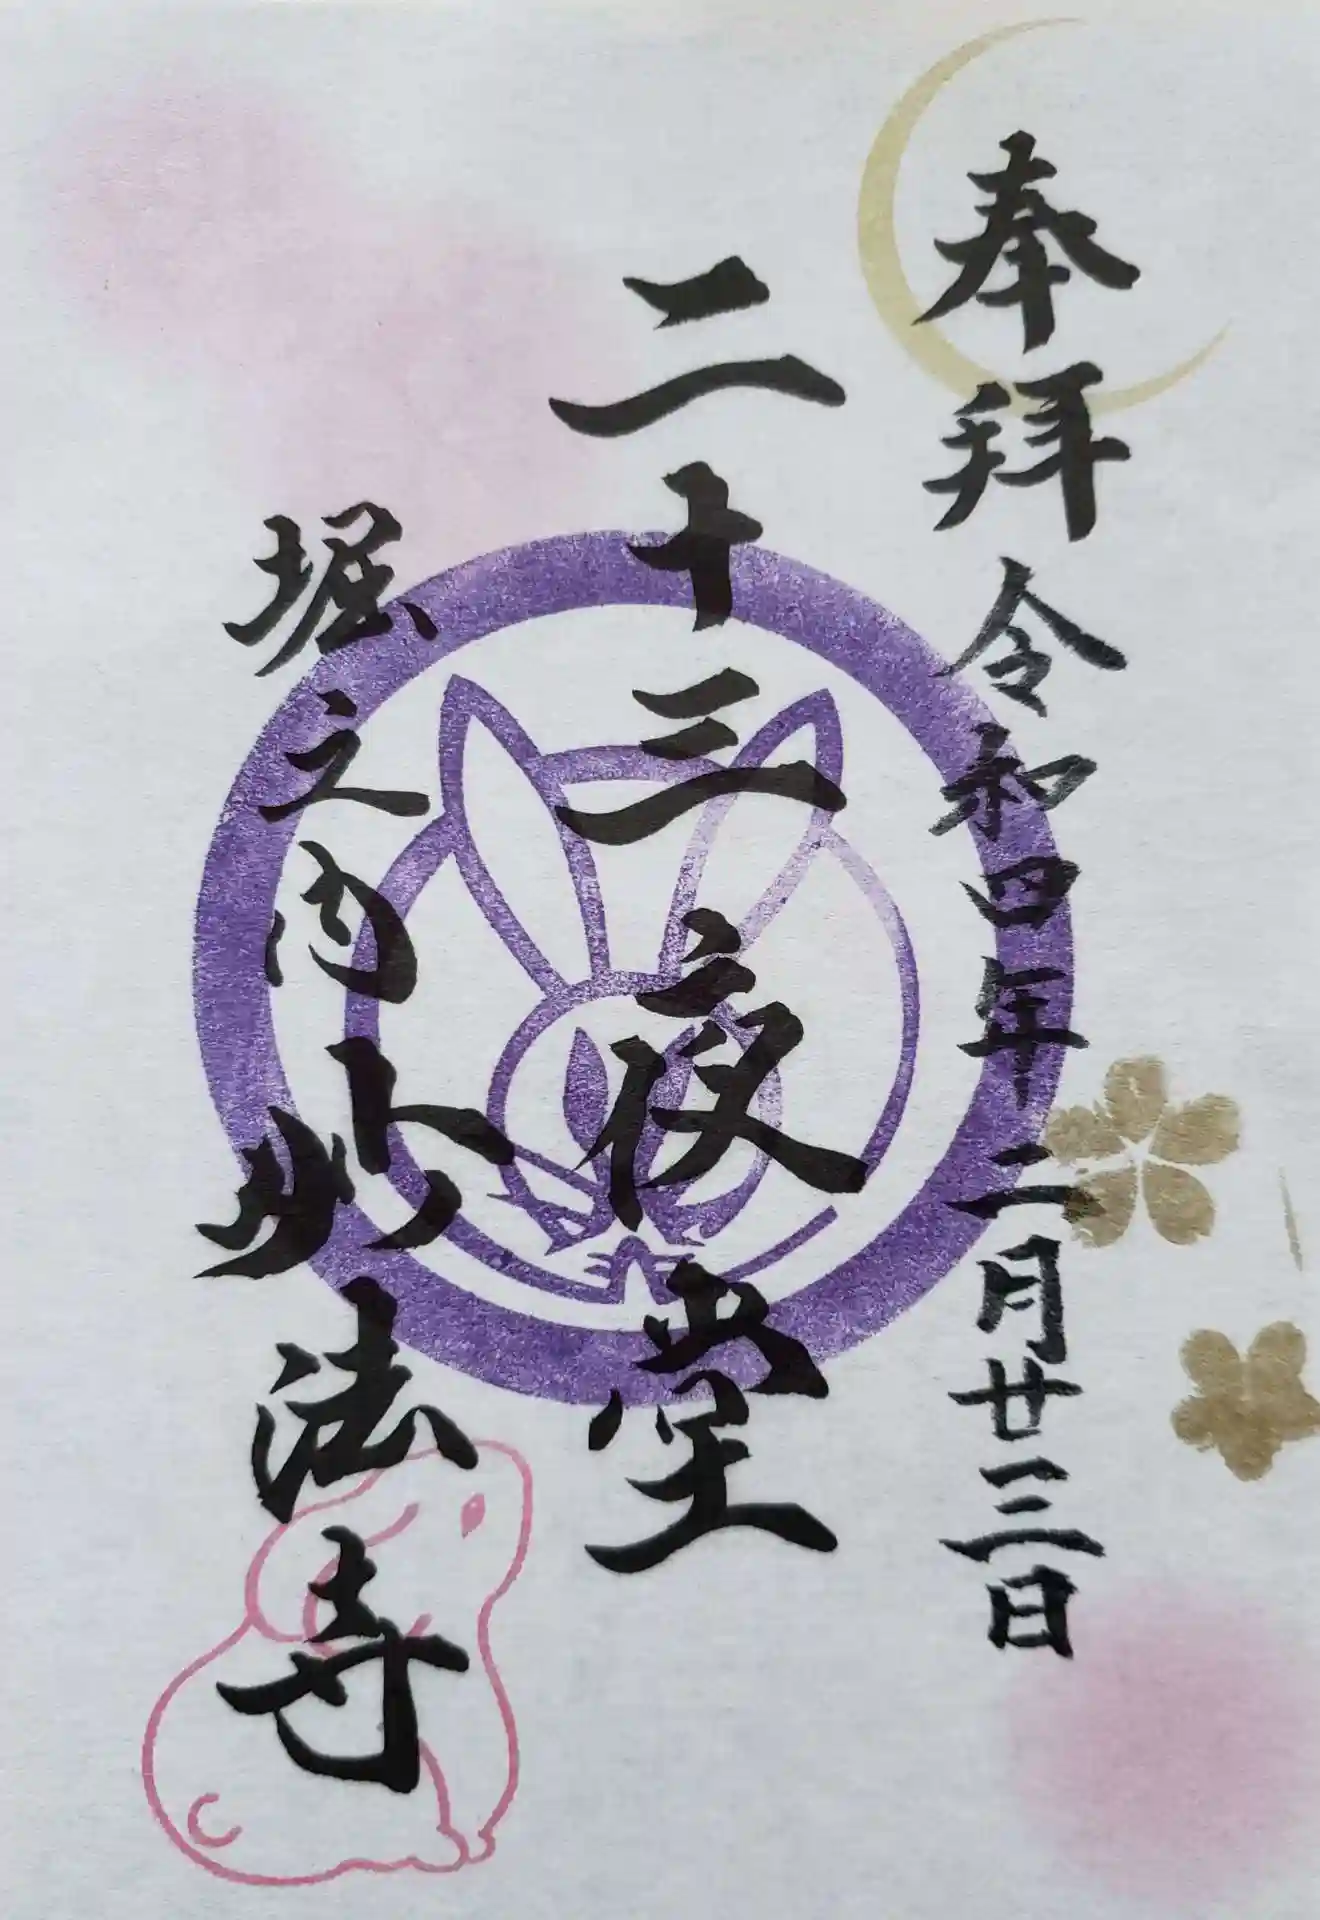 奉拝 令和四年二月廿三日
二十三夜堂
堀之内妙法寺